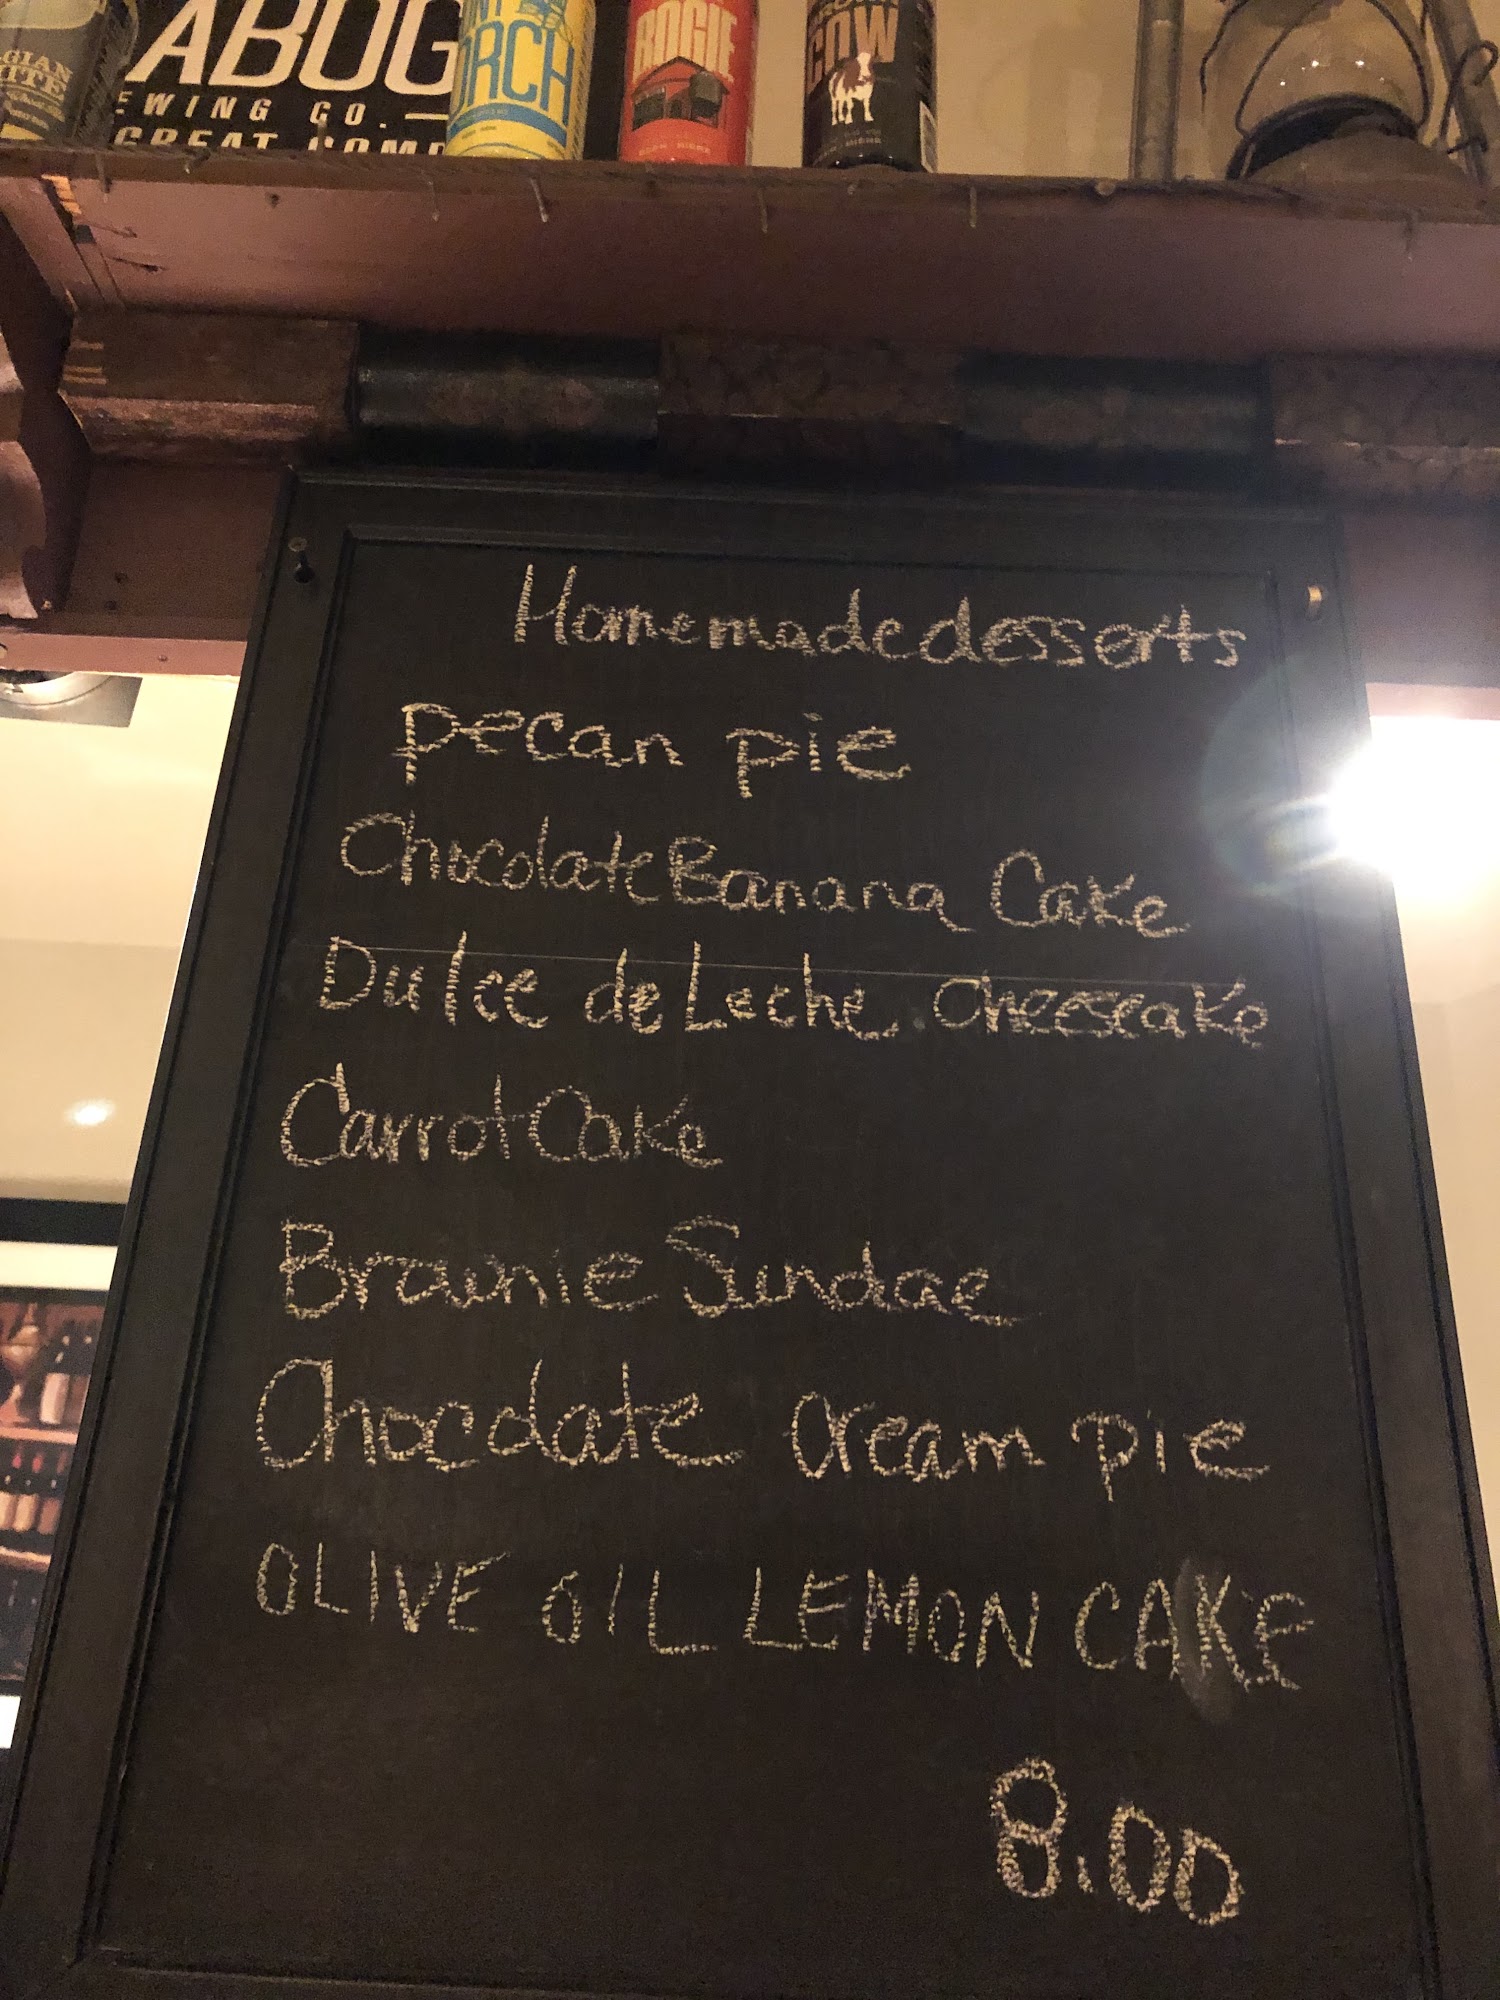 ABOG
EWING CO.
GREAT
ORCH
BOGIE
COW
Homemade desserts
pecan pie
Chocolate Banana Cake
Dulce de Leche Cheesecake
Carrot Cake
Brownie Sundae
Chocolate Cream pie
OLIVE OIL LEMON CAKE
8.00